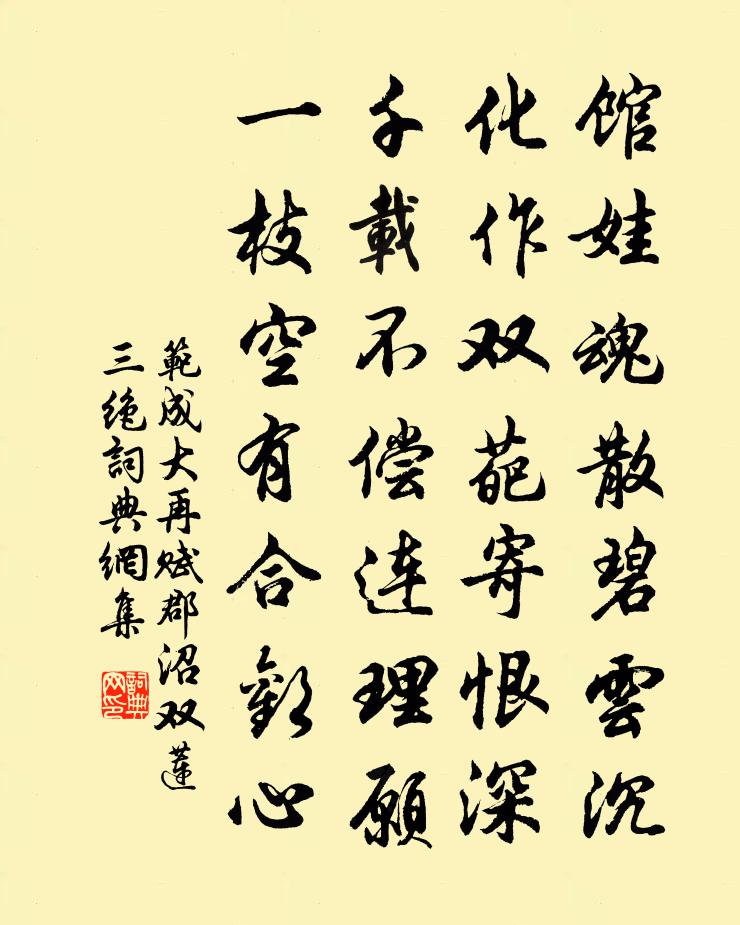 馆娃魂散碧雲沉
化作双葩寄恨深
千載不偿连理願
一枝空有合歡心
範成大再赋郡沼双蓮
三絶詞典網集
詞典
网印